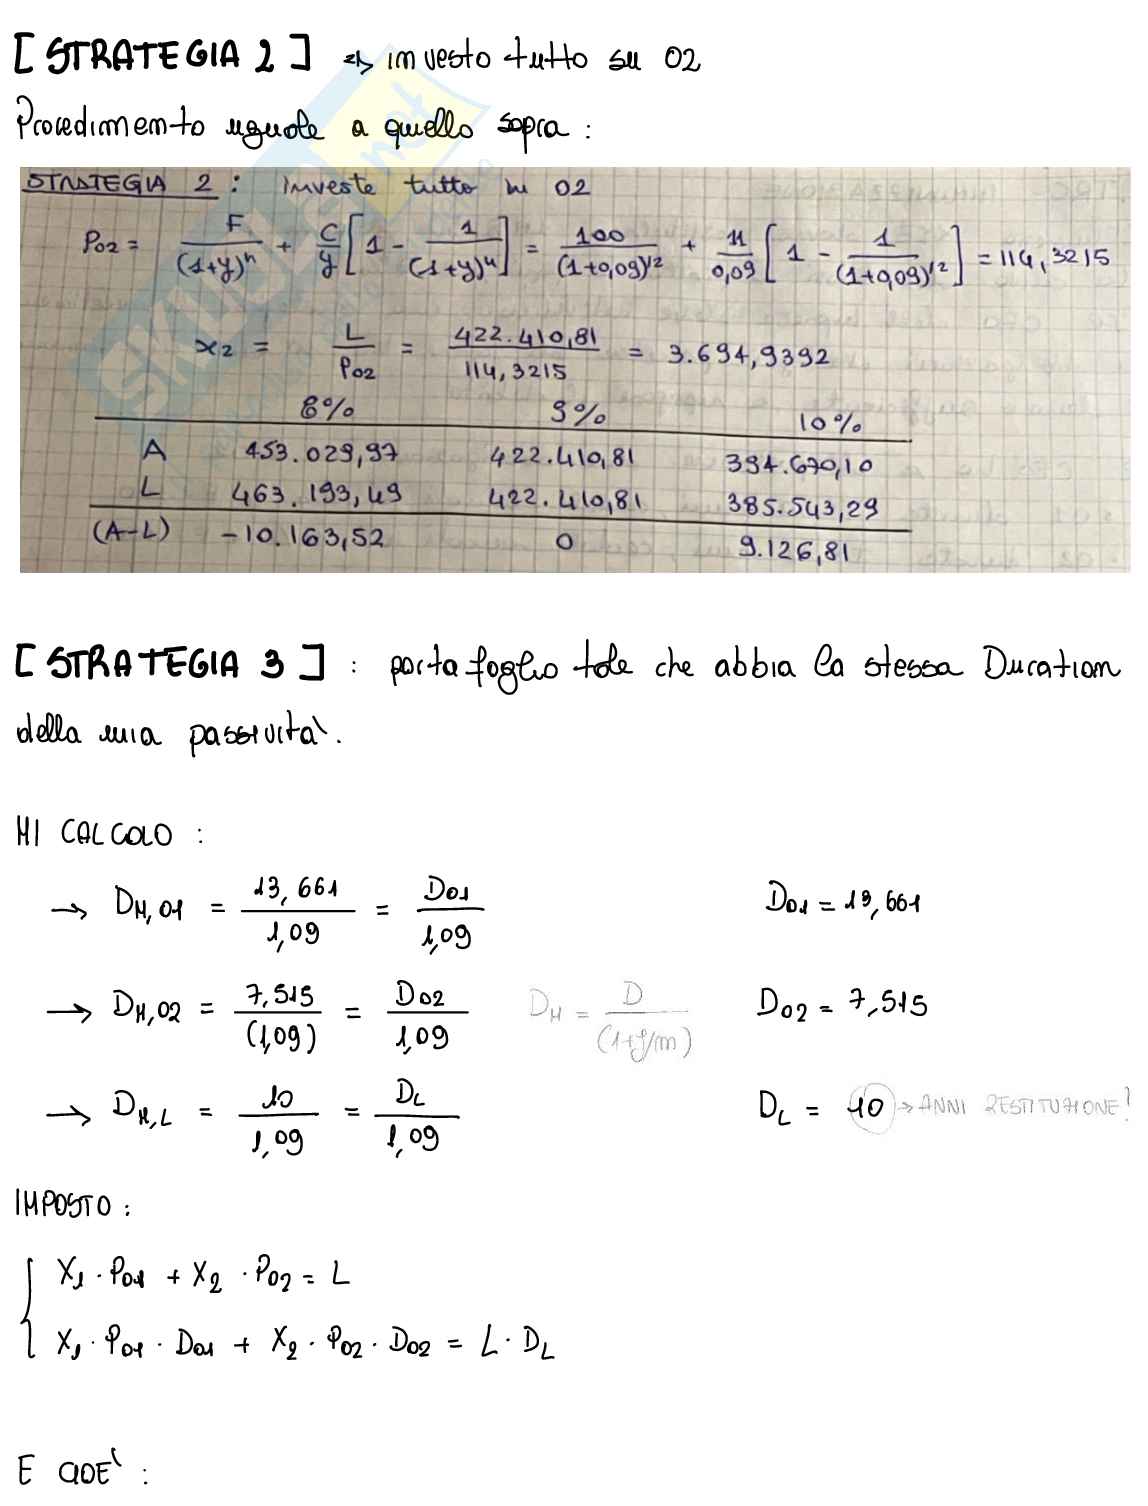 [STRATEGIA 2] => investo tutto su O2
Procedimento uguale a quello sopra :
STRATEGIA 2 : investe tutto su O2
P02 = F/(1+y)^n + C/y [1 - 1/(1+y)^n] = 100/(1+0,09)^12 + 11/0,09 [1 - 1/(1+0,09)^12] = 114,3215
x2 = L/P02 = 422.410,81/114,3215 = 3.694,9392
8% 9% 10%
A 453.029,97 422.410,81 394.670,10
L 463.193,49 422.410,81 385.543,29
(A-L) -10.163,52 0 9.126,81
[STRATEGIA 3] : portafoglio tale che abbia la stessa Duration
della mia passività.
MI CALCOLO :
→ DM,01 = 13,661/1,09 = D01/1,09 D01 = 13,661
→ DM,02 = 7,515/(1,09) = D02/1,09 DM = D/(1+y/m) D02 = 7,515
→ DM,L = 10/1,09 = DL/1,09 DL = 10 → ANNI RESTITUZIONE!
IMPOSTO :
X1 · P01 + X2 · P02 = L
X1 · P01 · D01 + X2 · P02 · D02 = L · DL
E CIOE' :